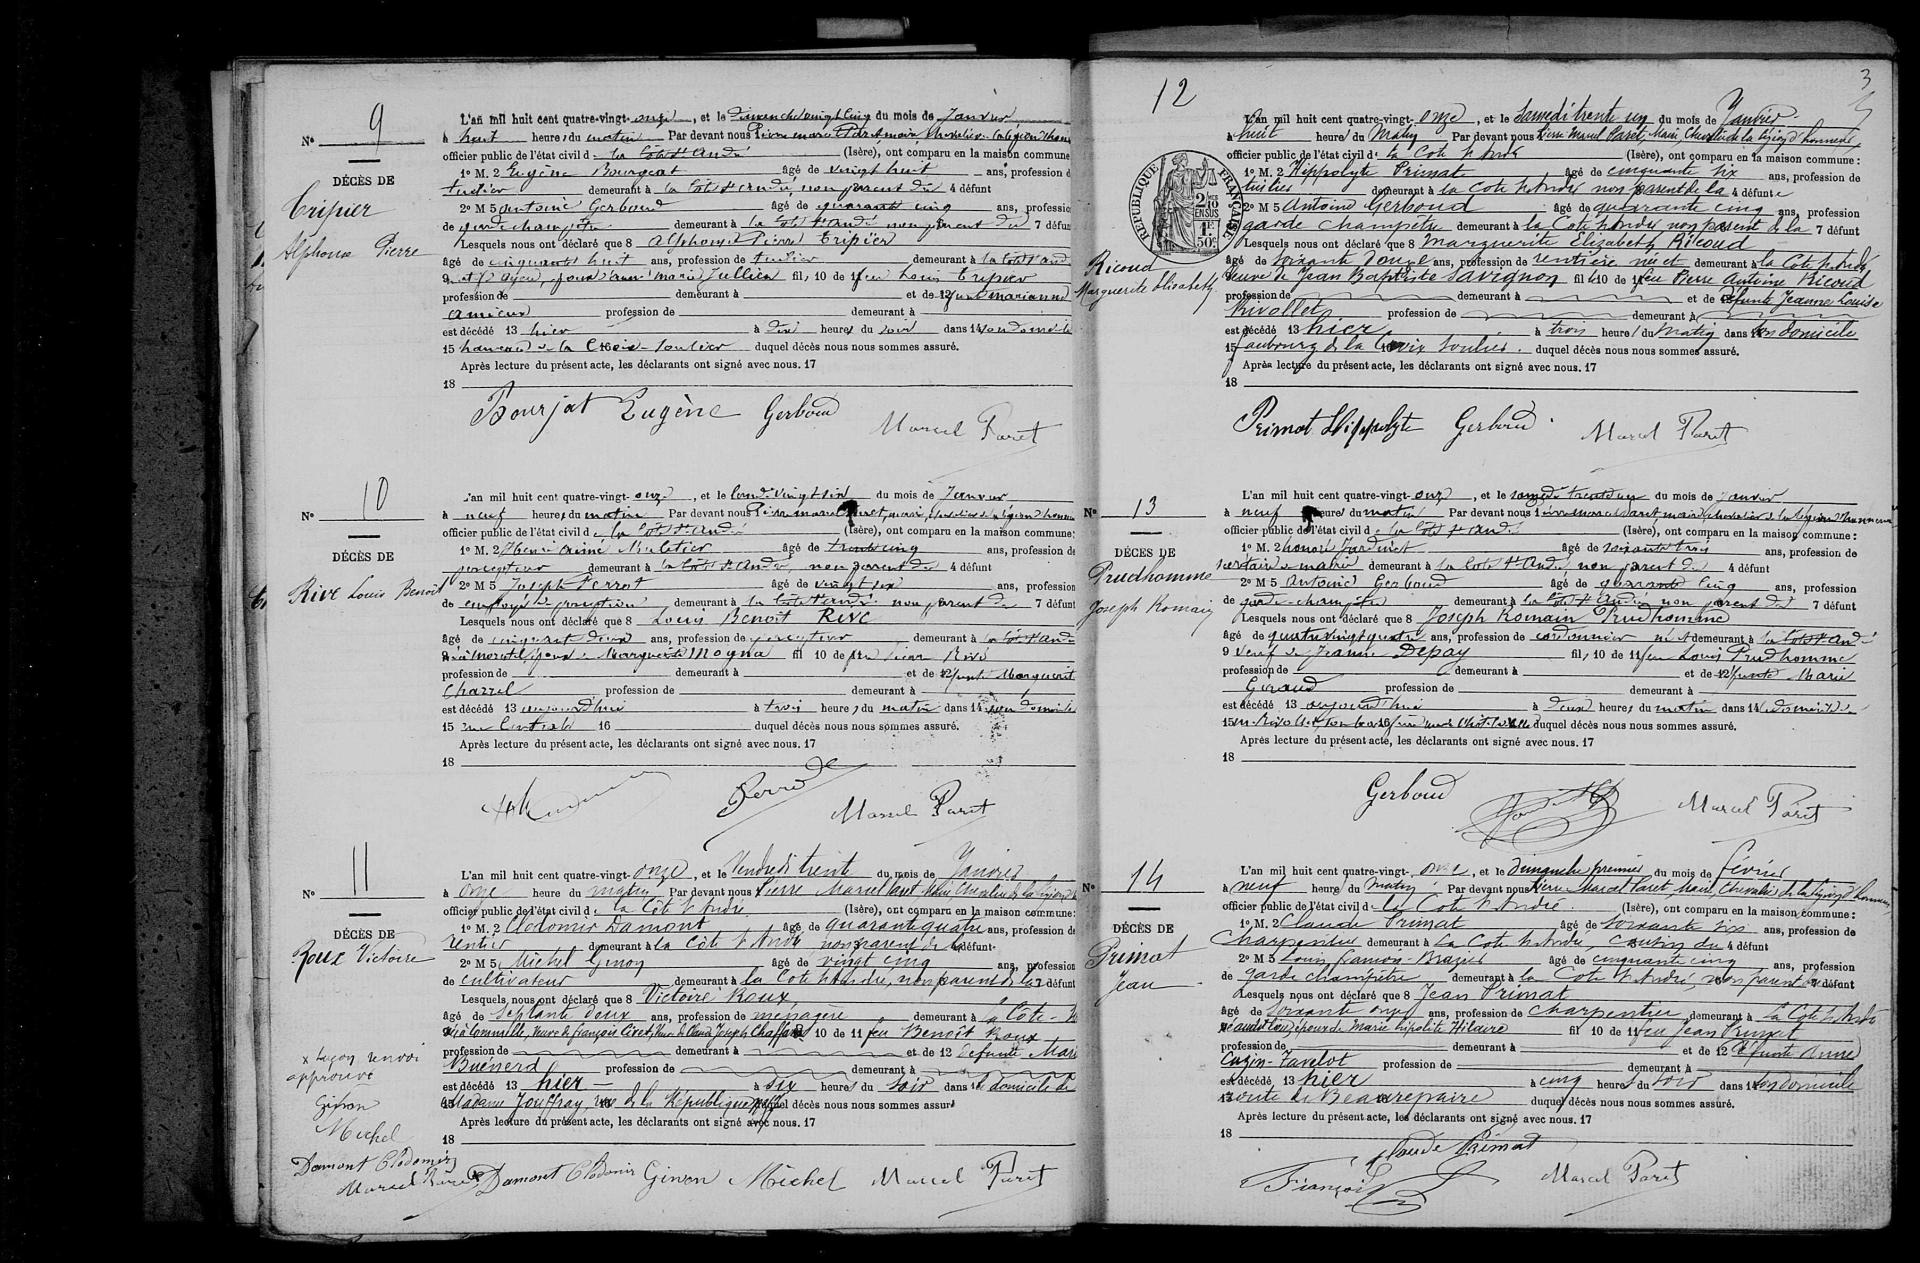 9
L'an mil huit cent quatre-vingt-onze, et le dimanche vingt cinq du mois de Janvier
No
à huit heures du matin Par devant nous Pierre marcel Paret maire Chevalier de la légion d'hon
officier public de l'état civil de la Côte St André (Isère), ont comparu en la maison commune
1o M. 2 Eugène Bourgeat âgé de vingt huit ans, profession d
DÉCÈS DE
tuilier demeurant à la Côte St André, non parent du 4 défunt
Tripier
Alphonse Pierre
2o M 5 Antoine Gerboud âgé de quarante cinq ans, profession
de garde champêtre demeurant à la Côte St André non parent du 7 défunt
Lesquels nous ont déclaré que 8 Alphonse Pierre Tripier
âgé de cinquante huit ans, profession de tuilier demeurant à la Côte St And
9 époux d'anne marie Jullien fil, 10 de 11 feu Louis Tripier
profession de demeurant à et de 12 funte marianne
Amieux profession de demeurant à
est décédé 13 hier à dix heures du soir dans 14 son domicile
15 hameau de la Croix-Soulier duquel décès nous nous sommes assuré.
Après lecture du présent acte, les déclarants ont signé avec nous. 17
18
Bourjat Eugène Gerboud Marcel Paret
10
L'an mil huit cent quatre-vingt-onze, et le lundi vingt six du mois de Janvier
No
à neuf heures du matin Par devant nous Pierre marcel Paret, maire, chevalier de la légion d'honneur
officier public de l'état civil de la Côte St André (Isère), ont comparu en la maison commune:
1o M. 2 Henri aimé Muletier âgé de trente cinq ans, profession de
DÉCÈS DE
percepteur demeurant à la Côte St André, non parent du 4 défunt
Rive Louis Benoît
2o M 5 Joseph Perrot âgé de vingt six ans, profession
de employé de perception demeurant à la Côte St André non parent du 7 défunt
Lesquels nous ont déclaré que 8 Louis Benoît Rive
âgé de cinquante deux ans, profession de percepteur demeurant à la Côte St André
9 né à Morestel, époux de Marguerite Mogna fil 10 de feu Rive
profession de demeurant à et de 12 funte Marguerite
Charrel profession de demeurant à
est décédé 13 aujourd'hui à trois heures du matin dans 14 son domicile
15 rue Centrale 16 duquel décès nous nous sommes assuré.
Après lecture du présent acte, les déclarants ont signé avec nous. 17
18
Marcel Paret
11
L'an mil huit cent quatre-vingt-onze, et le Vendredi trente du mois de Janvier
No
à onze heure du matin Par devant nous Pierre Marcel Paret, Maire, Chevalier de la Légion d'h
officier public de l'état civil de la Côte St André (Isère), ont comparu en la maison commune:
1o M. 2 Clodomir Damont âgé de quarante quatre ans, profession de
DÉCÈS DE
rentier demeurant à la Côte St André non parent de la défunt
Roux Victoire
2o M 5 Michel Ginon âgé de vingt cinq ans, profession
de cultivateur demeurant à la Côte St André, non parent de la 7 défunt
Lesquels nous ont déclaré que 8 Victoire Roux
âgé de septante deux ans, profession de ménagère demeurant à la Côte-St
veuve de françois Civet, veuve de Claude Joseph Chaffard 10 de 11 feu Benoît Roux
profession de demeurant à et de 12 défunte Marie
Buénerd profession de demeurant à
est décédé 13 hier à six heures du soir dans le domicile de
15 Madame Jouffray, rue de la République duquel décès nous nous sommes assuré
Après lecture du présent acte, les déclarants ont signé avec nous. 17
18
x renvoi
approuvé
Ginon
Michel
Damont Clodomir
Marcel Paret
Damont Clodomir Ginon Michel Marcel Paret
3
12
L'an mil huit cent quatre-vingt-onze, et le Samedi trente un du mois de Janvier
à huit heures du Matin Par devant nous Pierre Marcel Paret, Maire, Chevalier de la Légion d'honneur,
officier public de l'état civil de la Côte St André (Isère), ont comparu en la maison commune:
1o M. 2 Hippolyte Primat âgé de cinquante six ans, profession de
tuilier demeurant à la Côte St André non parent de la 4 défunte
2o M 5 Antoine Gerboud âgé de quarante cinq ans, profession
de garde champêtre demeurant à la Côte St André non parent de la 7 défunt
Lesquels nous ont déclaré que 8 Marguerite Elizabeth Ricoud
RÉPUBLIQUE FRANÇAISE
2/10 EN SUS
1F 50c
Ricoud
Marguerite Elisabeth
âgé de soixante douze ans, profession de rentière née et demeurant à la Côte St André
veuve de Jean Baptiste Savignon fille 10 de 11 feu Pierre Antoine Ricoud
profession de demeurant à et de 12 défunte Jeanne Louise
Rivollet profession de demeurant à
est décédé 13 hier à trois heures du Matin dans son domicile
15 faubourg de la Croix Soulier duquel décès nous nous sommes assuré.
Après lecture du présent acte, les déclarants ont signé avec nous. 17
18
Primat Hippolyte Gerboud Marcel Paret
13
L'an mil huit cent quatre-vingt-onze, et le samedi trente un du mois de janvier
No
à neuf heures du matin Par devant nous Pierre marcel Paret, maire, chevalier de la légion d'honneur
officier public de l'état civil de la Côte St André (Isère), ont comparu en la maison commune:
1o M. 2 honoré Jardinet âgé de soixante trois ans, profession de
DÉCÈS DE
secrétaire de mairie demeurant à la Côte St André, non parent du 4 défunt
Prudhomme
Joseph Romain
2o M 5 Antoine Gerboud âgé de quarante cinq ans, profession
de garde-champêtre demeurant à la Côte St André non parent du 7 défunt
Lesquels nous ont déclaré que 8 Joseph Romain Prudhomme
âgé de quatre vingt quatre ans, profession de cordonnier né et demeurant à la Côte St André
9 veuf de Jeanne Depay fil, 10 de 11 feu Louis Prudhomme
profession de demeurant à et de 12 funte Marie
Giraud profession de demeurant à
est décédé 13 aujourd'hui à deux heures du matin dans 14 le domicile de
duquel décès nous nous sommes assuré.
Après lecture du présent acte, les déclarants ont signé avec nous. 17
18
Gerboud Marcel Paret
14
L'an mil huit cent quatre-vingt-onze, et le dimanche premier du mois de février
No
à neuf heure du matin Par devant nous Pierre Marcel Paret, Maire, Chevalier de la Légion d'honneur,
officier public de l'état civil de la Côte St André (Isère), ont comparu en la maison commune:
1o M. 2 Claude Primat âgé de soixante six ans, profession de
DÉCÈS DE
charpentier demeurant à la Côte St André, cousin du 4 défunt
Primat
Jean
2o M 5 Louis françois Brazier âgé de cinquante cinq ans, profession
de garde champêtre demeurant à la Côte St André, non parent du 7 défunt
Lesquels nous ont déclaré que 8 Jean Primat
âgé de soixante onze ans, profession de charpentier demeurant à la Côte St André
époux de Marie hipolite Hilaire fil 10 de 11 feu Jean Primat
profession de demeurant à et de 12 défunte Anne
Cuzin-Favelot profession de demeurant à
est décédé 13 hier à cinq heures du soir dans 14 son domicile
15 route de Beaurepaire duquel décès nous nous sommes assuré.
Après lecture du présent acte, les déclarants ont signé avec nous. 17
18
Claude Primat
François Marcel Paret